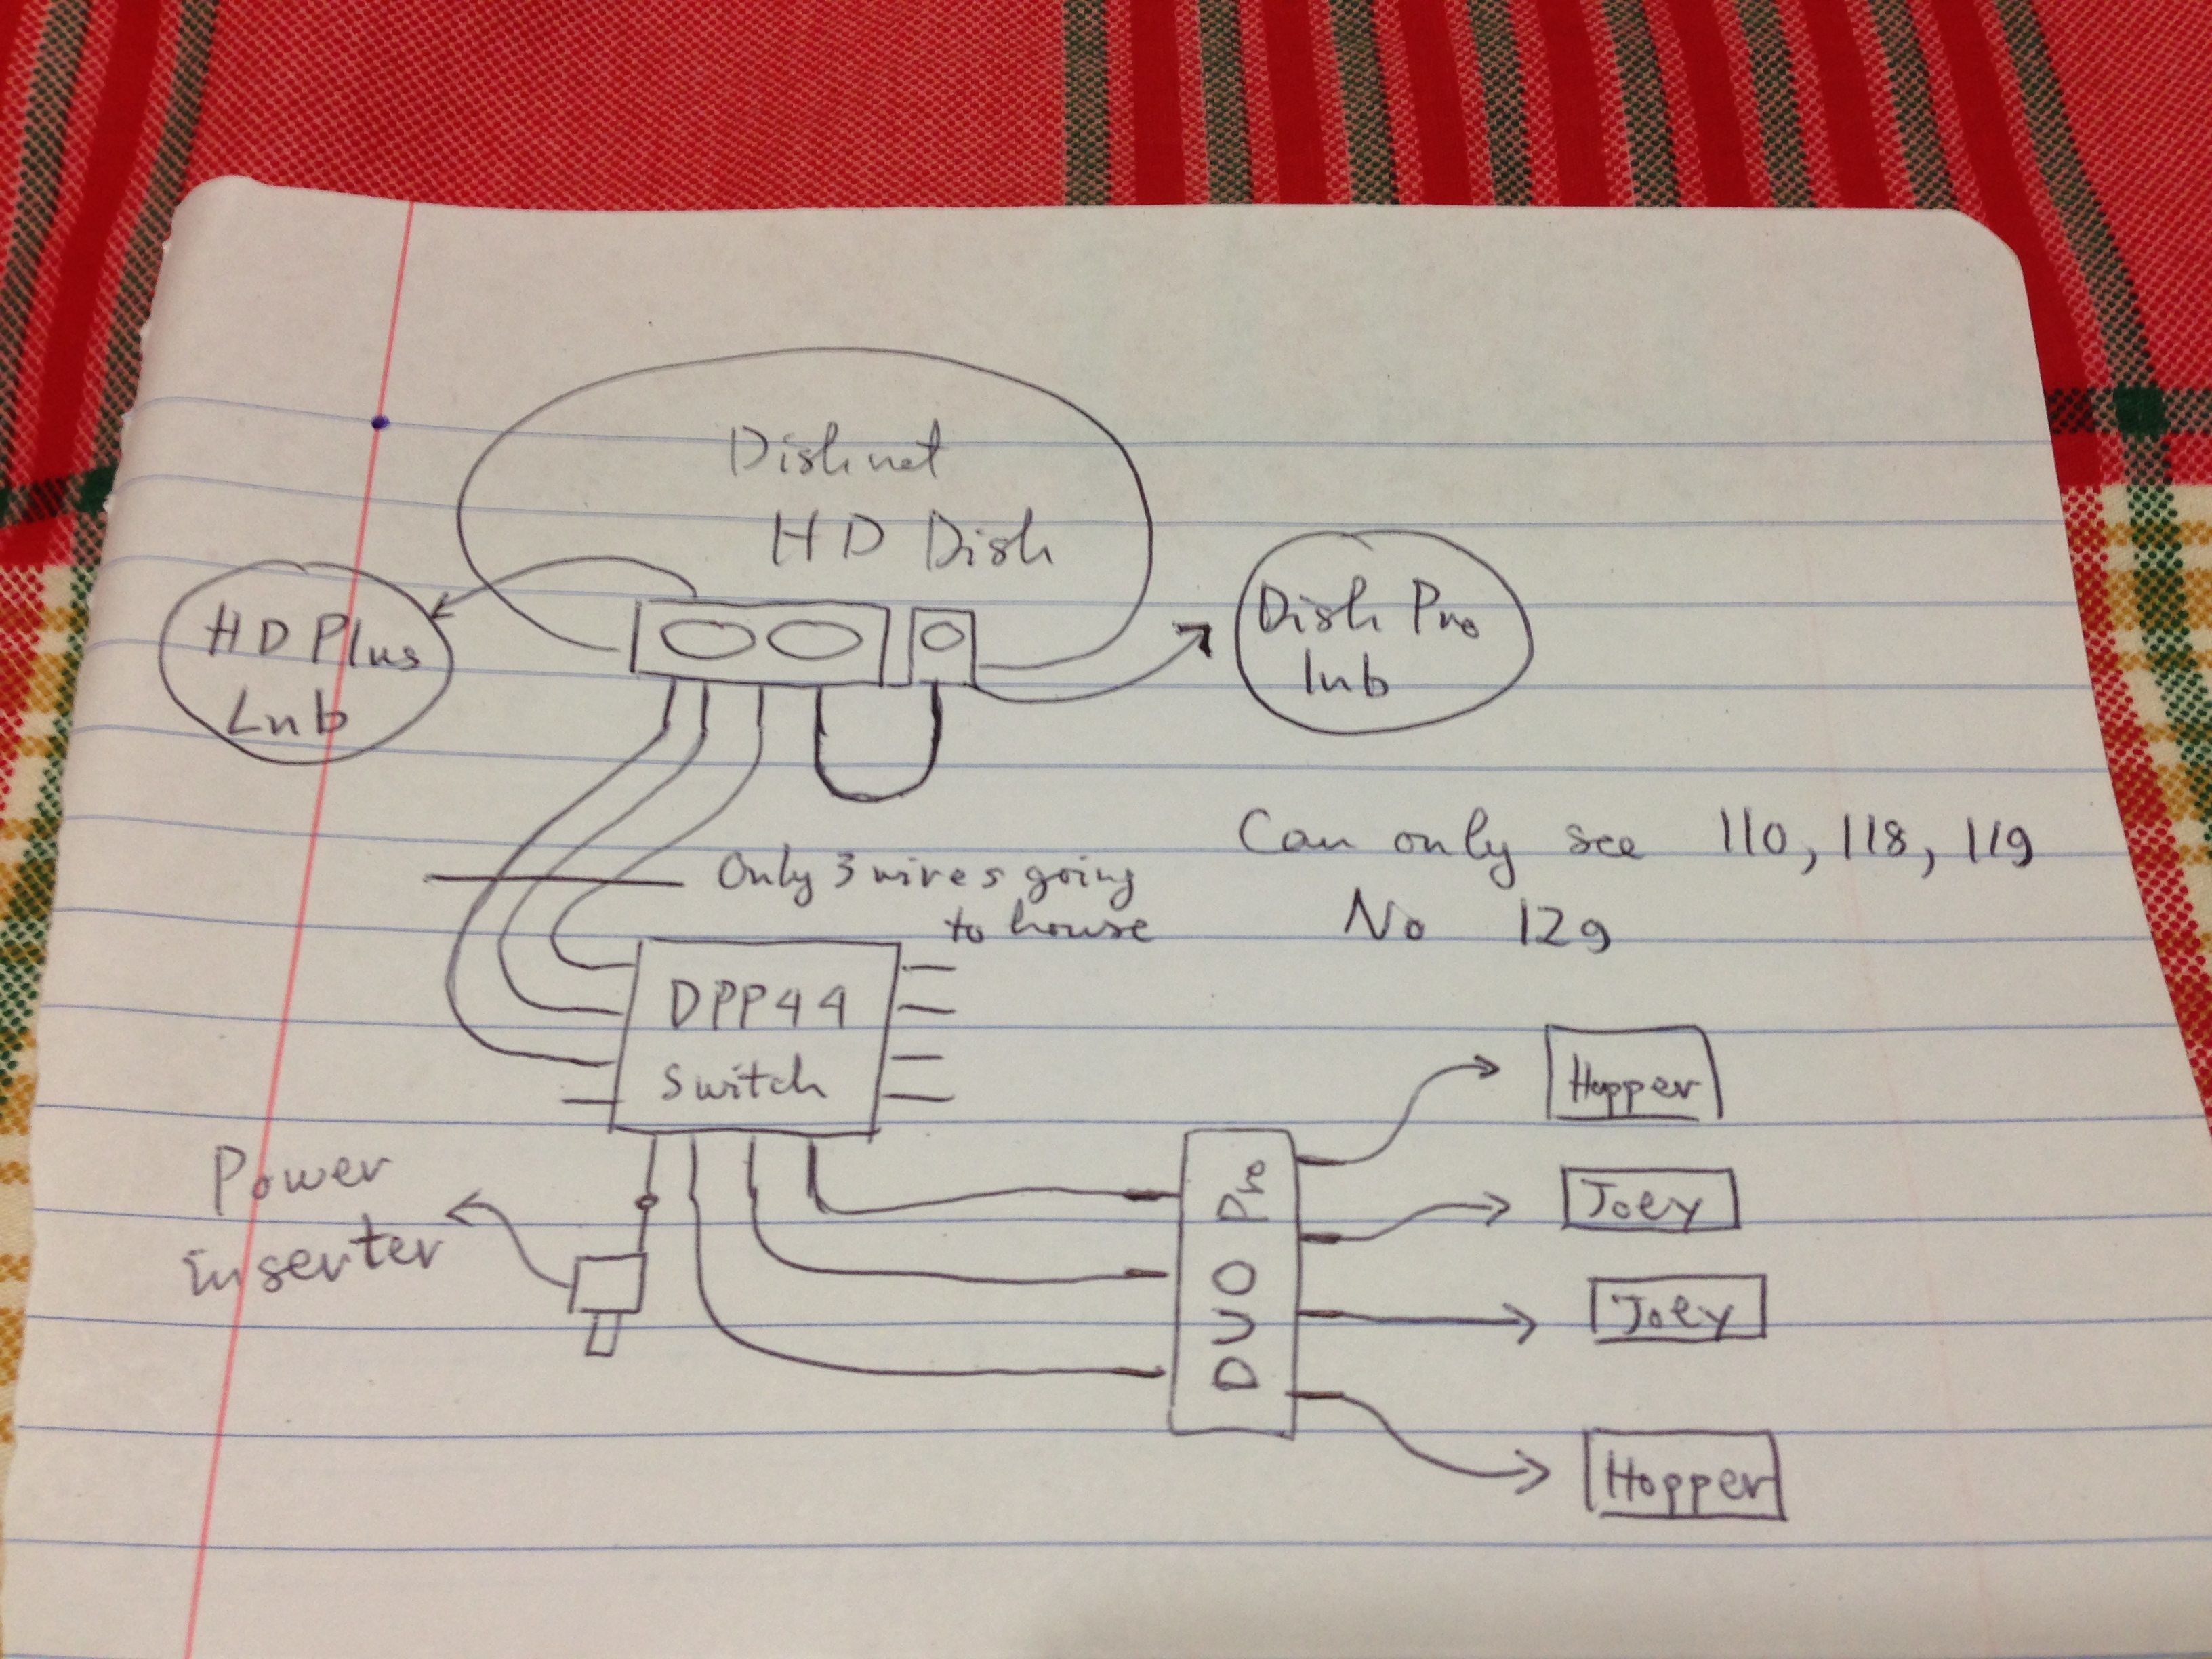 Dishnet
HD Dish
HD Plus
Lnb
Dish Pro
lnb
Only 3 wires going
to house
Can only see 110, 118, 119
No 129
DPP44
Switch
Power
inserter
DUO Pro
Hopper
Joey
Joey
Hopper